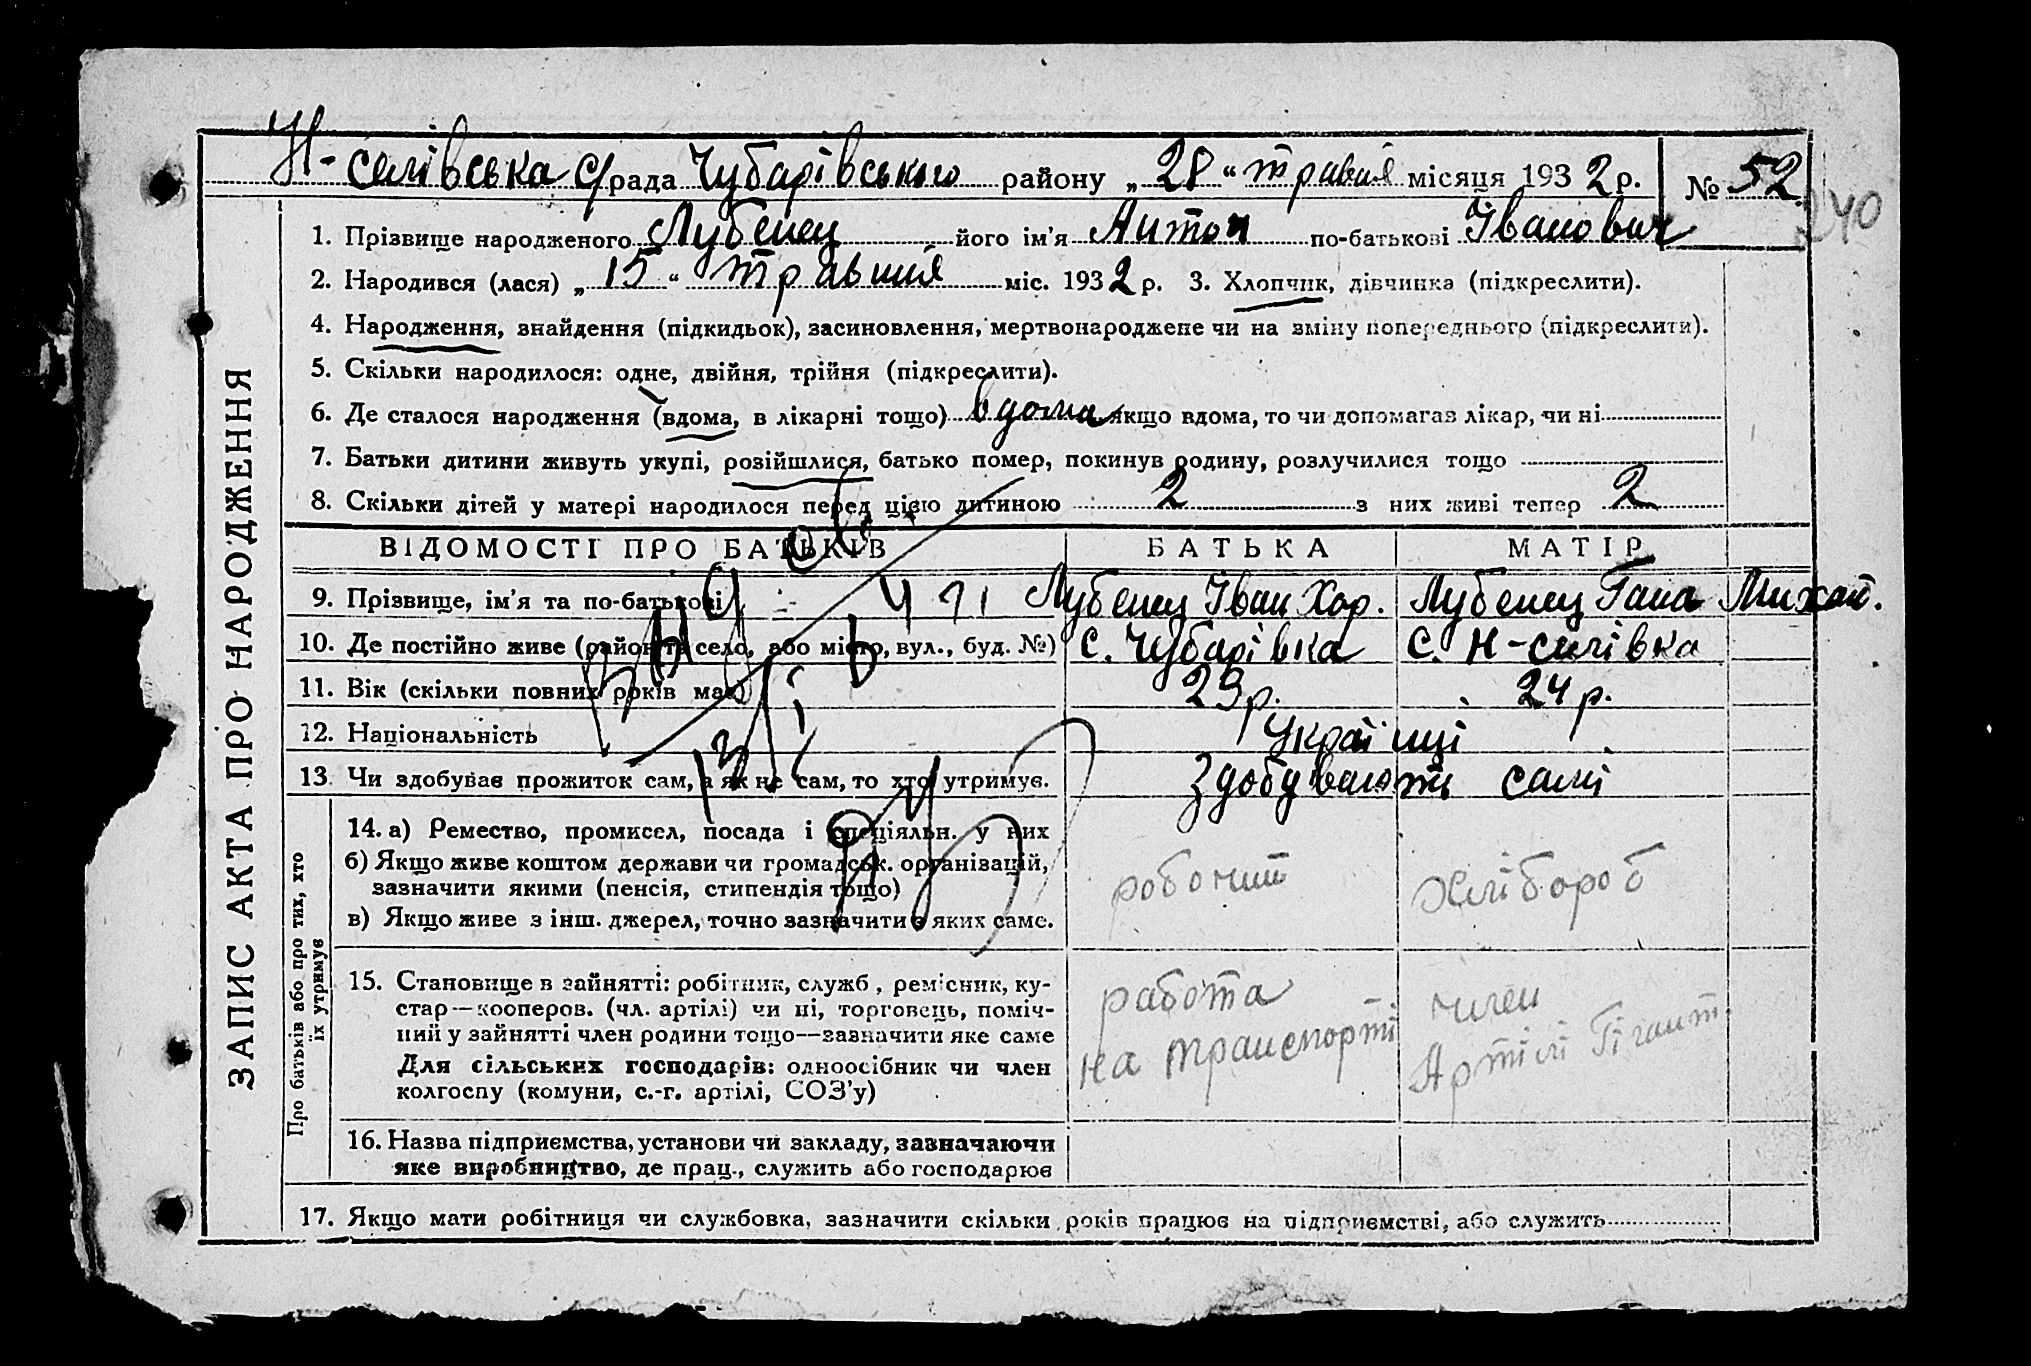 Н-селівська с/рада Чубарівського району „28“ травня місяця 1932 р. № 52
240
1. Прізвище народженого Лубенец його ім'я Антон по-батькові Іванович
2. Народився (лася) „15“ травння міс. 1932 р. 3. Хлопчик, дівчинка (підкреслити).
4. Народження, знайдення (підкидьок), засиновлення, мертвонароджене чи на зміну попереднього (підкреслити).
5. Скільки народилося: одне, двійня, трійня (підкреслити).
6. Де сталося народження (вдома, в лікарні тощо) вдома якщо вдома, то чи допомагав лікар, чи ні
7. Батьки дитини живуть укупі, розійшлися, батько помер, покинув родину, розлучилися тощо
8. Скільки дітей у матері народилося перед цією дитиною 2 з них живі тепер 2
ВІДОМОСТІ ПРО БАТЬКІВ БАТЬКА МАТІР
9. Прізвище, ім'я та по-батькові Лубенец Іван Хар. Лубенец Гана Михай.
10. Де постійно живе (район та село, або місто, вул., буд. №) с. Чубарівка с. Н-селівка
11. Вік (скільки повних років має) 29 р. 24 р.
12. Національність Українці
13. Чи здобуває прожиток сам, а як не сам, то хто утримує. Здобувають самі
14. а) Ремество, промисел, посада і спеціяльн. у них
б) Якщо живе коштом держави чи громадськ. організацій,
зазначити якими (пенсія, стипендія тощо)
в) Якщо живе з інш. джерел, точно зазначити з яких саме.
робочий хлібороб
15. Становище в зайнятті: робітник, служб., ремісник, ку-
стар—кооперов. (чл. артілі) чи ні, торговець, поміч-
ний у зайнятті член родини тощо—зазначити яке саме
Для сільських господарів: одноосібник чи член
колгоспу (комуни, с.-г. артілі, СОЗ'у)
работа
на транспорті
член
Артілі Гігант.
16. Назва підприємства, установи чи закладу, зазначаючи
яке виробництво, де прац., служить або господарює
17. Якщо мати робітниця чи службовка, зазначити скільки років працює на підприємстві, або служить
ЗАПИС АКТА ПРО НАРОДЖЕННЯ
Про батьків або про тих, хто
їх утримує